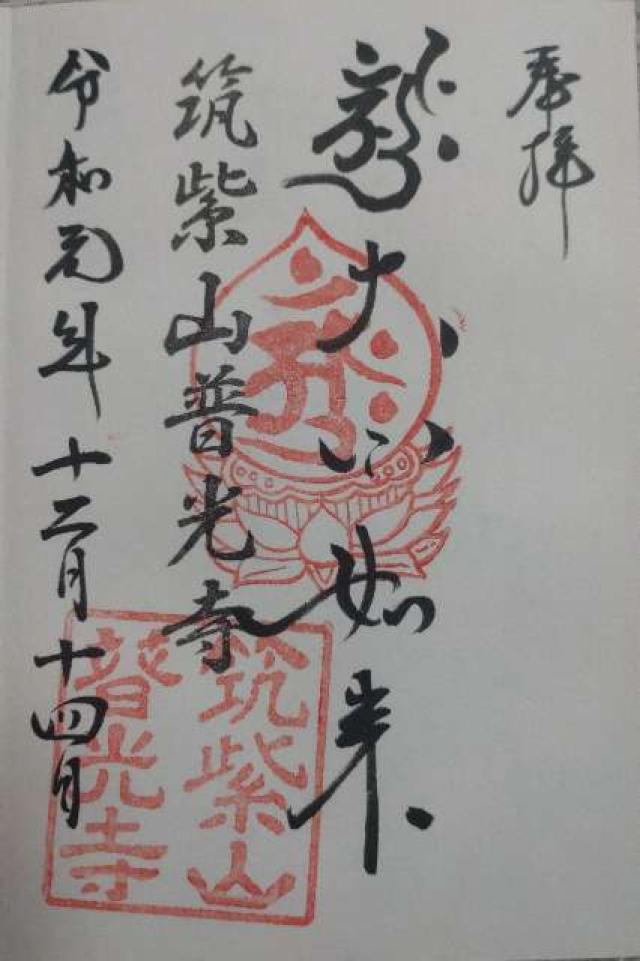 奉拝
如来
筑紫山普光寺
令和元年十二月十四日
筑紫山
普光寺